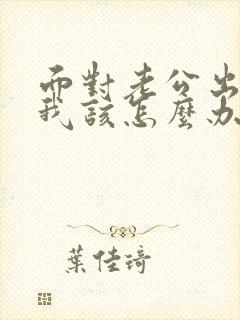 面對老公出
我該怎麼办
葉佳琦